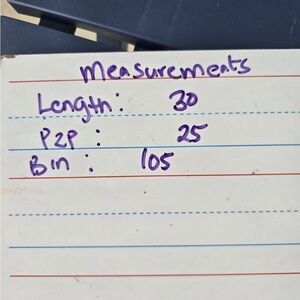 Measurements
Length: 30
P2P : 25
Bin : 105